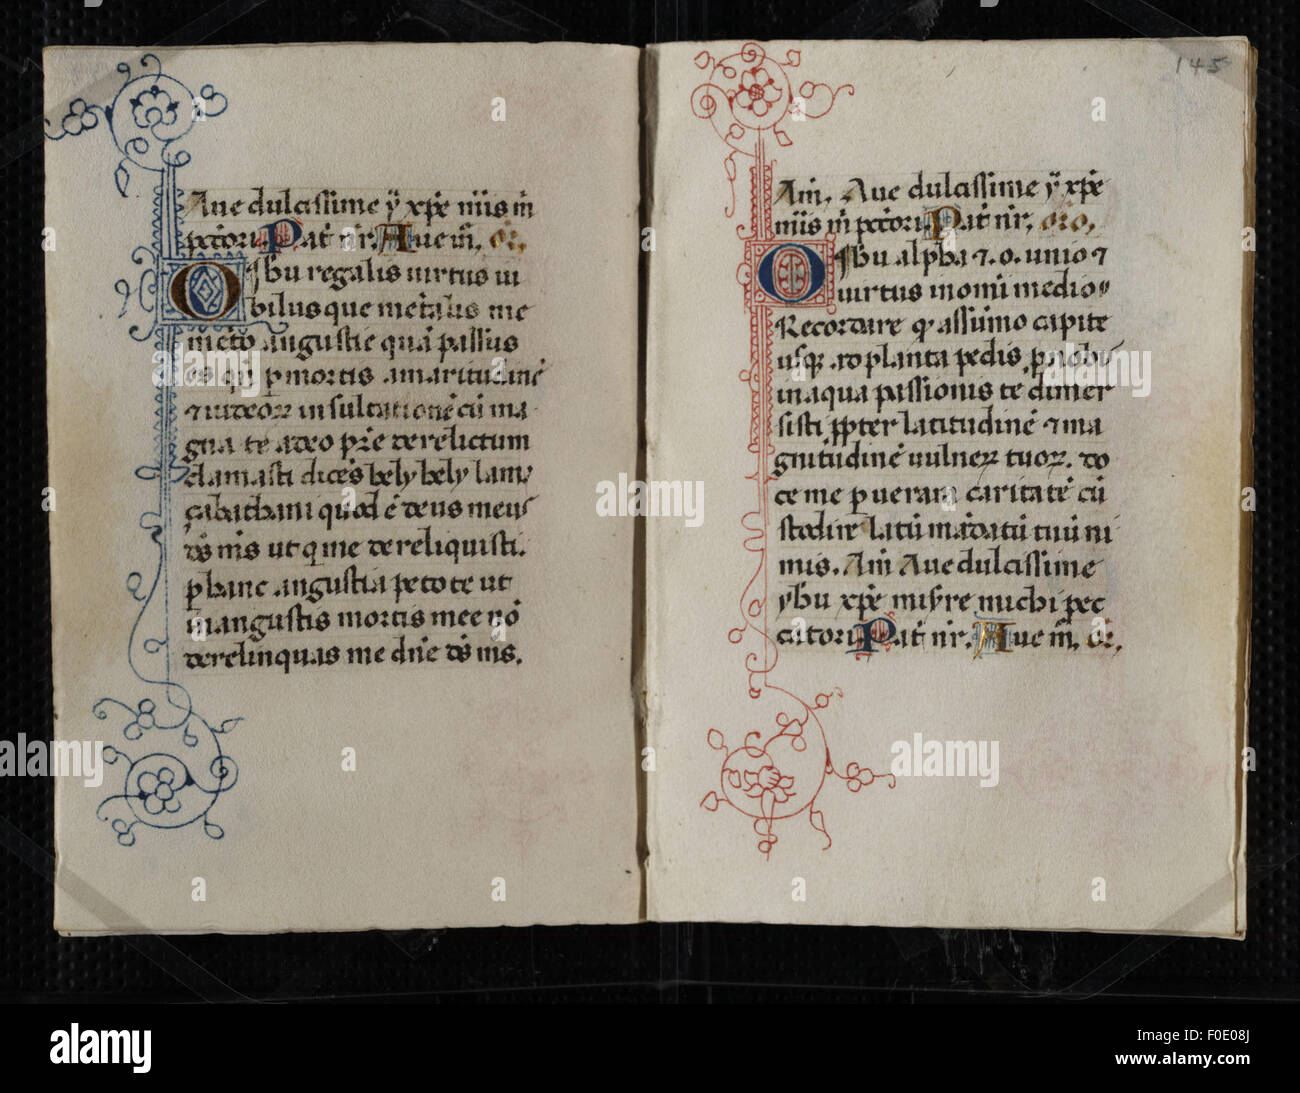 Aue dulcissime yħ xp̄e miis m̄
petōri Pat̄ nr̄. Aue m̄. or̄.
O Jħu regalis uirtus ui
bilusque metalis me
mēto angustie quā passus
es qn̄ p mortis amaritudinē
⁊ iudeoꝝ insultationē cū ma
gna te adeo p̄re derelictum
clamasti dicēs hely hely lam
cabathani quod ē deus meus
ds̄ m̄s ut q me dereliquisti.
p hanc angustia peto te ut
in angustis mortis mee nō
derelinquas me dn̄e ds̄ m̄s.
145
Am̄. Aue dulcissime yħ xp̄e
miis m̄ petōri Pat̄ nr̄. oro.
O Jħu alpha ⁊ .o. unio ⁊
uirtus in om̄i medio
Recordare q assūmo capite
usq ad planta pedis p me
in aqua passionis te dimer
sisti ppter latitudinē ⁊ ma
gnitudinē uulneꝝ tuoꝝ. do
ce me p ueram caritatē cū
stodire latū mādatū tuū ni
mis. Am̄ Aue dulcissime
yħu xp̄e mis̄ere michi pec
catori Pat̄ nr̄. Aue m̄. or̄.
alamy stock photo
alamy
Image ID: F0E08J
www.alamy.com